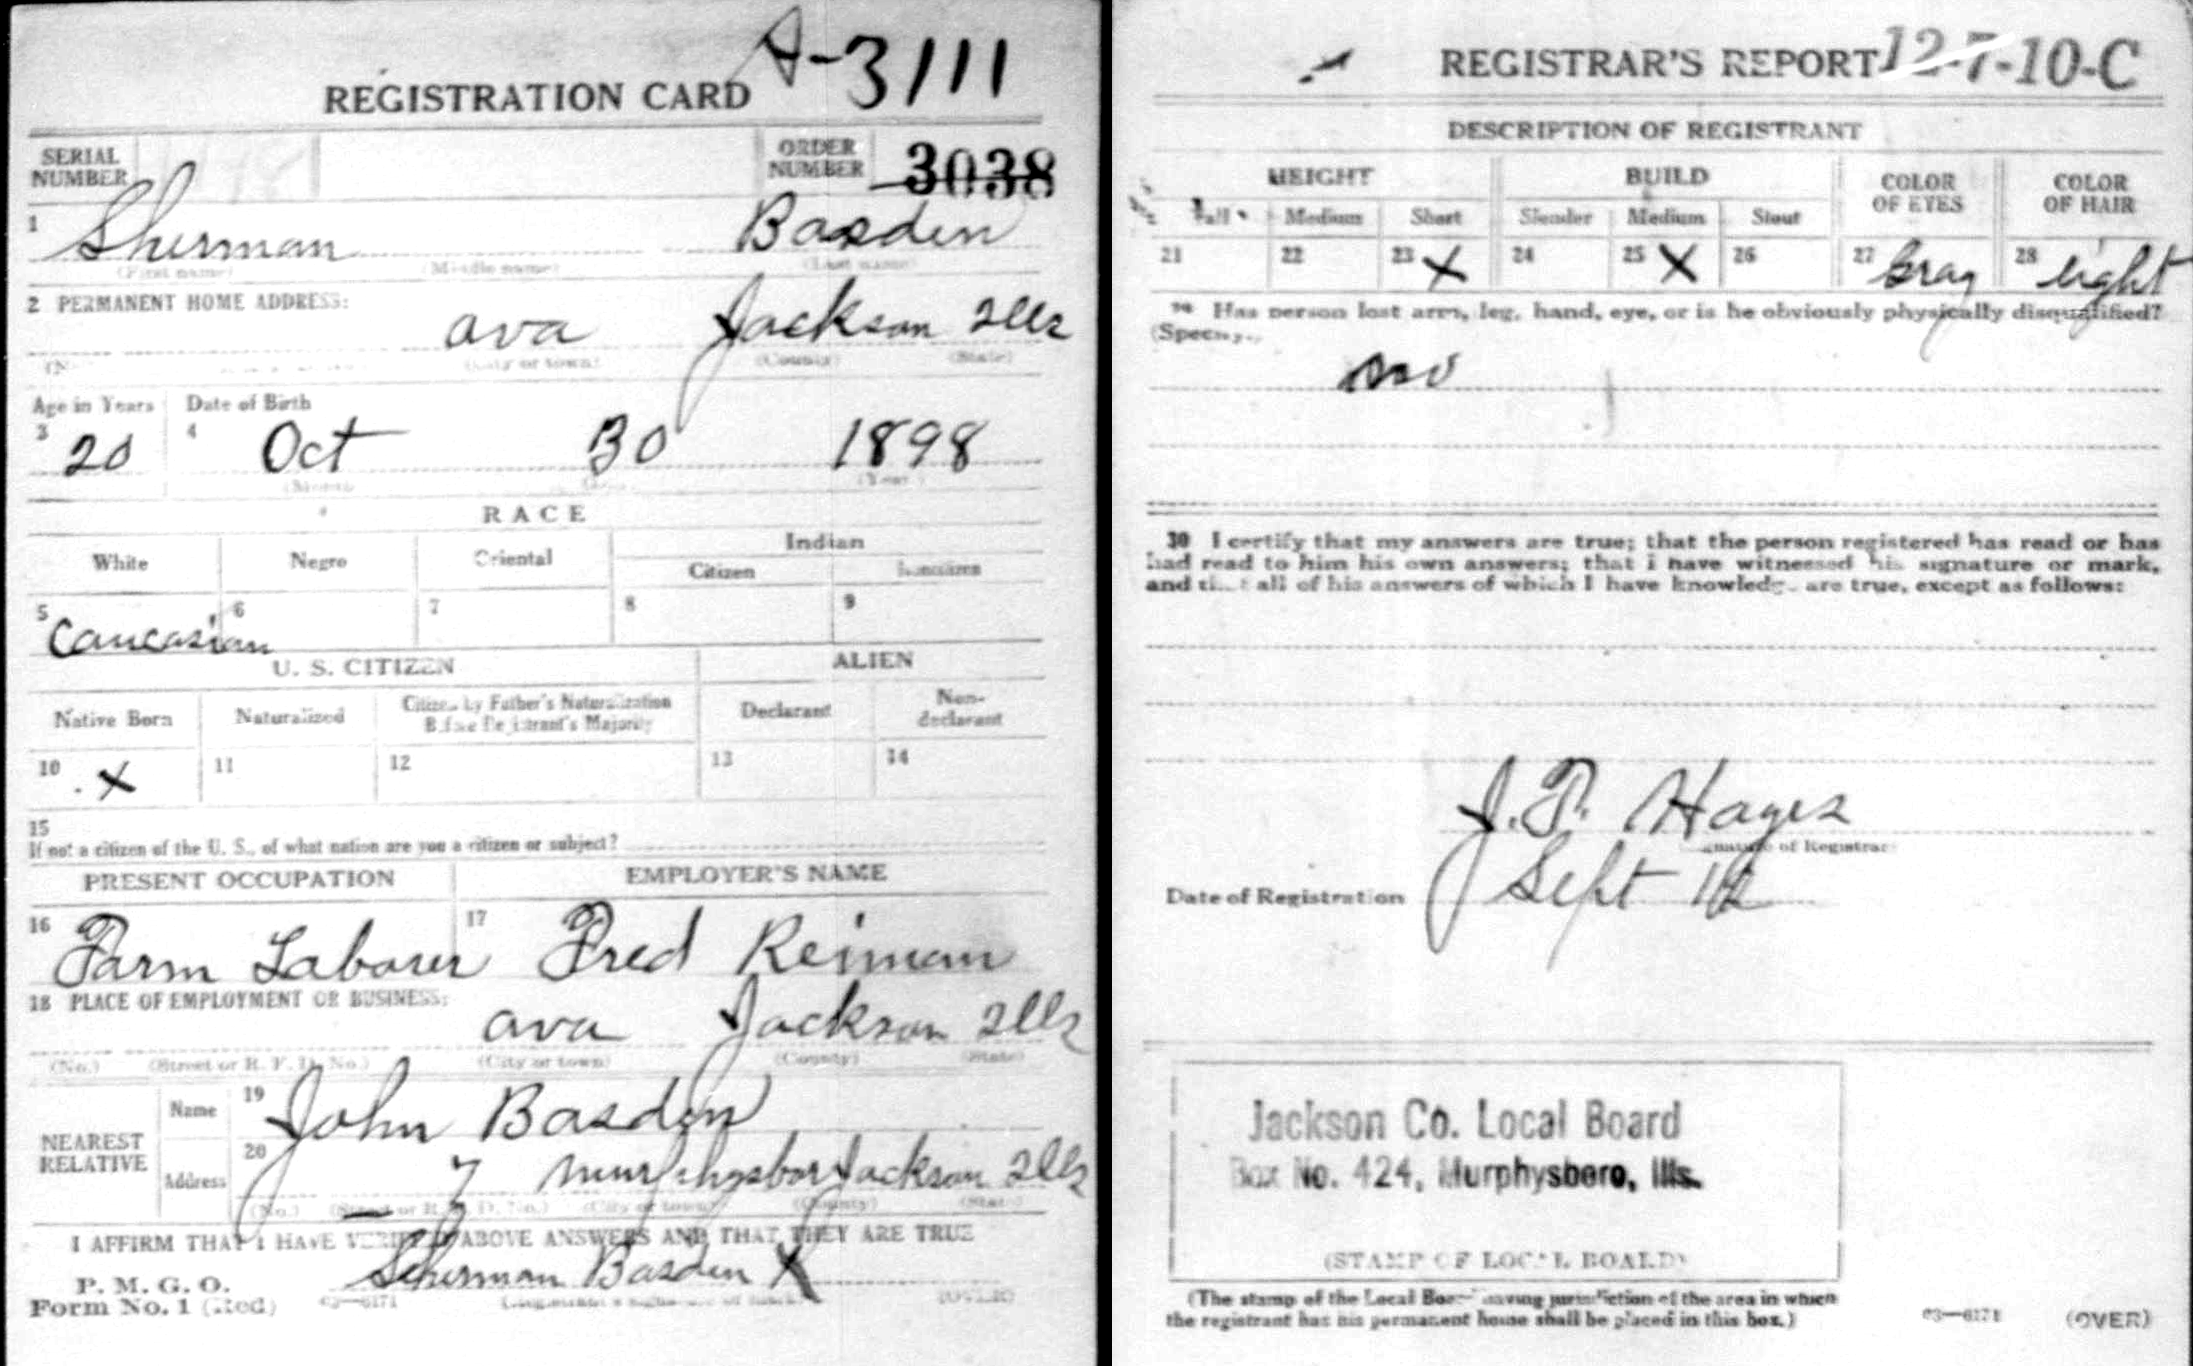 REGISTRATION CARD A-3111
SERIAL NUMBER
ORDER NUMBER 3038
1 Sherman Basden
(First name) (Middle name) (Last name)
2 PERMANENT HOME ADDRESS:
ava Jackson Ills
(City or town) (County) (State)
Age in Years Date of Birth
3 20 4 Oct 30 1898
(Month) (Day) (Year)
RACE
White Negro Oriental Indian
Citizen Noncitizen
5 Caucasian 6 7 8 9
U. S. CITIZEN ALIEN
Native Born Naturalized Citizen by Father's Naturalization Before Registrant's Majority Declarant Non-declarant
10 X 11 12 13 14
15
If not a citizen of the U. S., of what nation are you a citizen or subject?
PRESENT OCCUPATION EMPLOYER'S NAME
16 Farm Laborer 17 Fred Reiman
18 PLACE OF EMPLOYMENT OR BUSINESS:
ava Jackson Ills
(No.) (Street or R. F. D. No.) (City or town) (County) (State)
NEAREST RELATIVE
Name 19 John Basden
Address 20 7 Murphysbor Jackson Ills
(No.) (Street or R. F. D. No.) (City or town) (County) (State)
I AFFIRM THAT I HAVE VERIFIED ABOVE ANSWERS AND THAT THEY ARE TRUE
P. M. G. O.
Form No. 1 (Red) Sherman Basden X
03—6171 (Registrant's signature or mark) (OVER)
REGISTRAR'S REPORT 12-7-10-C
DESCRIPTION OF REGISTRANT
HEIGHT BUILD COLOR OF EYES COLOR OF HAIR
Tall Medium Short Slender Medium Stout
21 22 23 X 24 25 X 26 27 Gray 28 light
29 Has person lost arm, leg, hand, eye, or is he obviously physically disqualified?
(Specify.)
no
30 I certify that my answers are true; that the person registered has read or has
had read to him his own answers; that I have witnessed his signature or mark,
and that all of his answers of which I have knowledge are true, except as follows:
J. P. Hayes
Signature of Registrar
Date of Registration Sept 12
Jackson Co. Local Board
Box No. 424, Murphysboro, Ills.
(STAMP OF LOCAL BOARD)
(The stamp of the Local Board having jurisdiction of the area in which
the registrant has his permanent home shall be placed in this box.)
03—6171 (OVER)